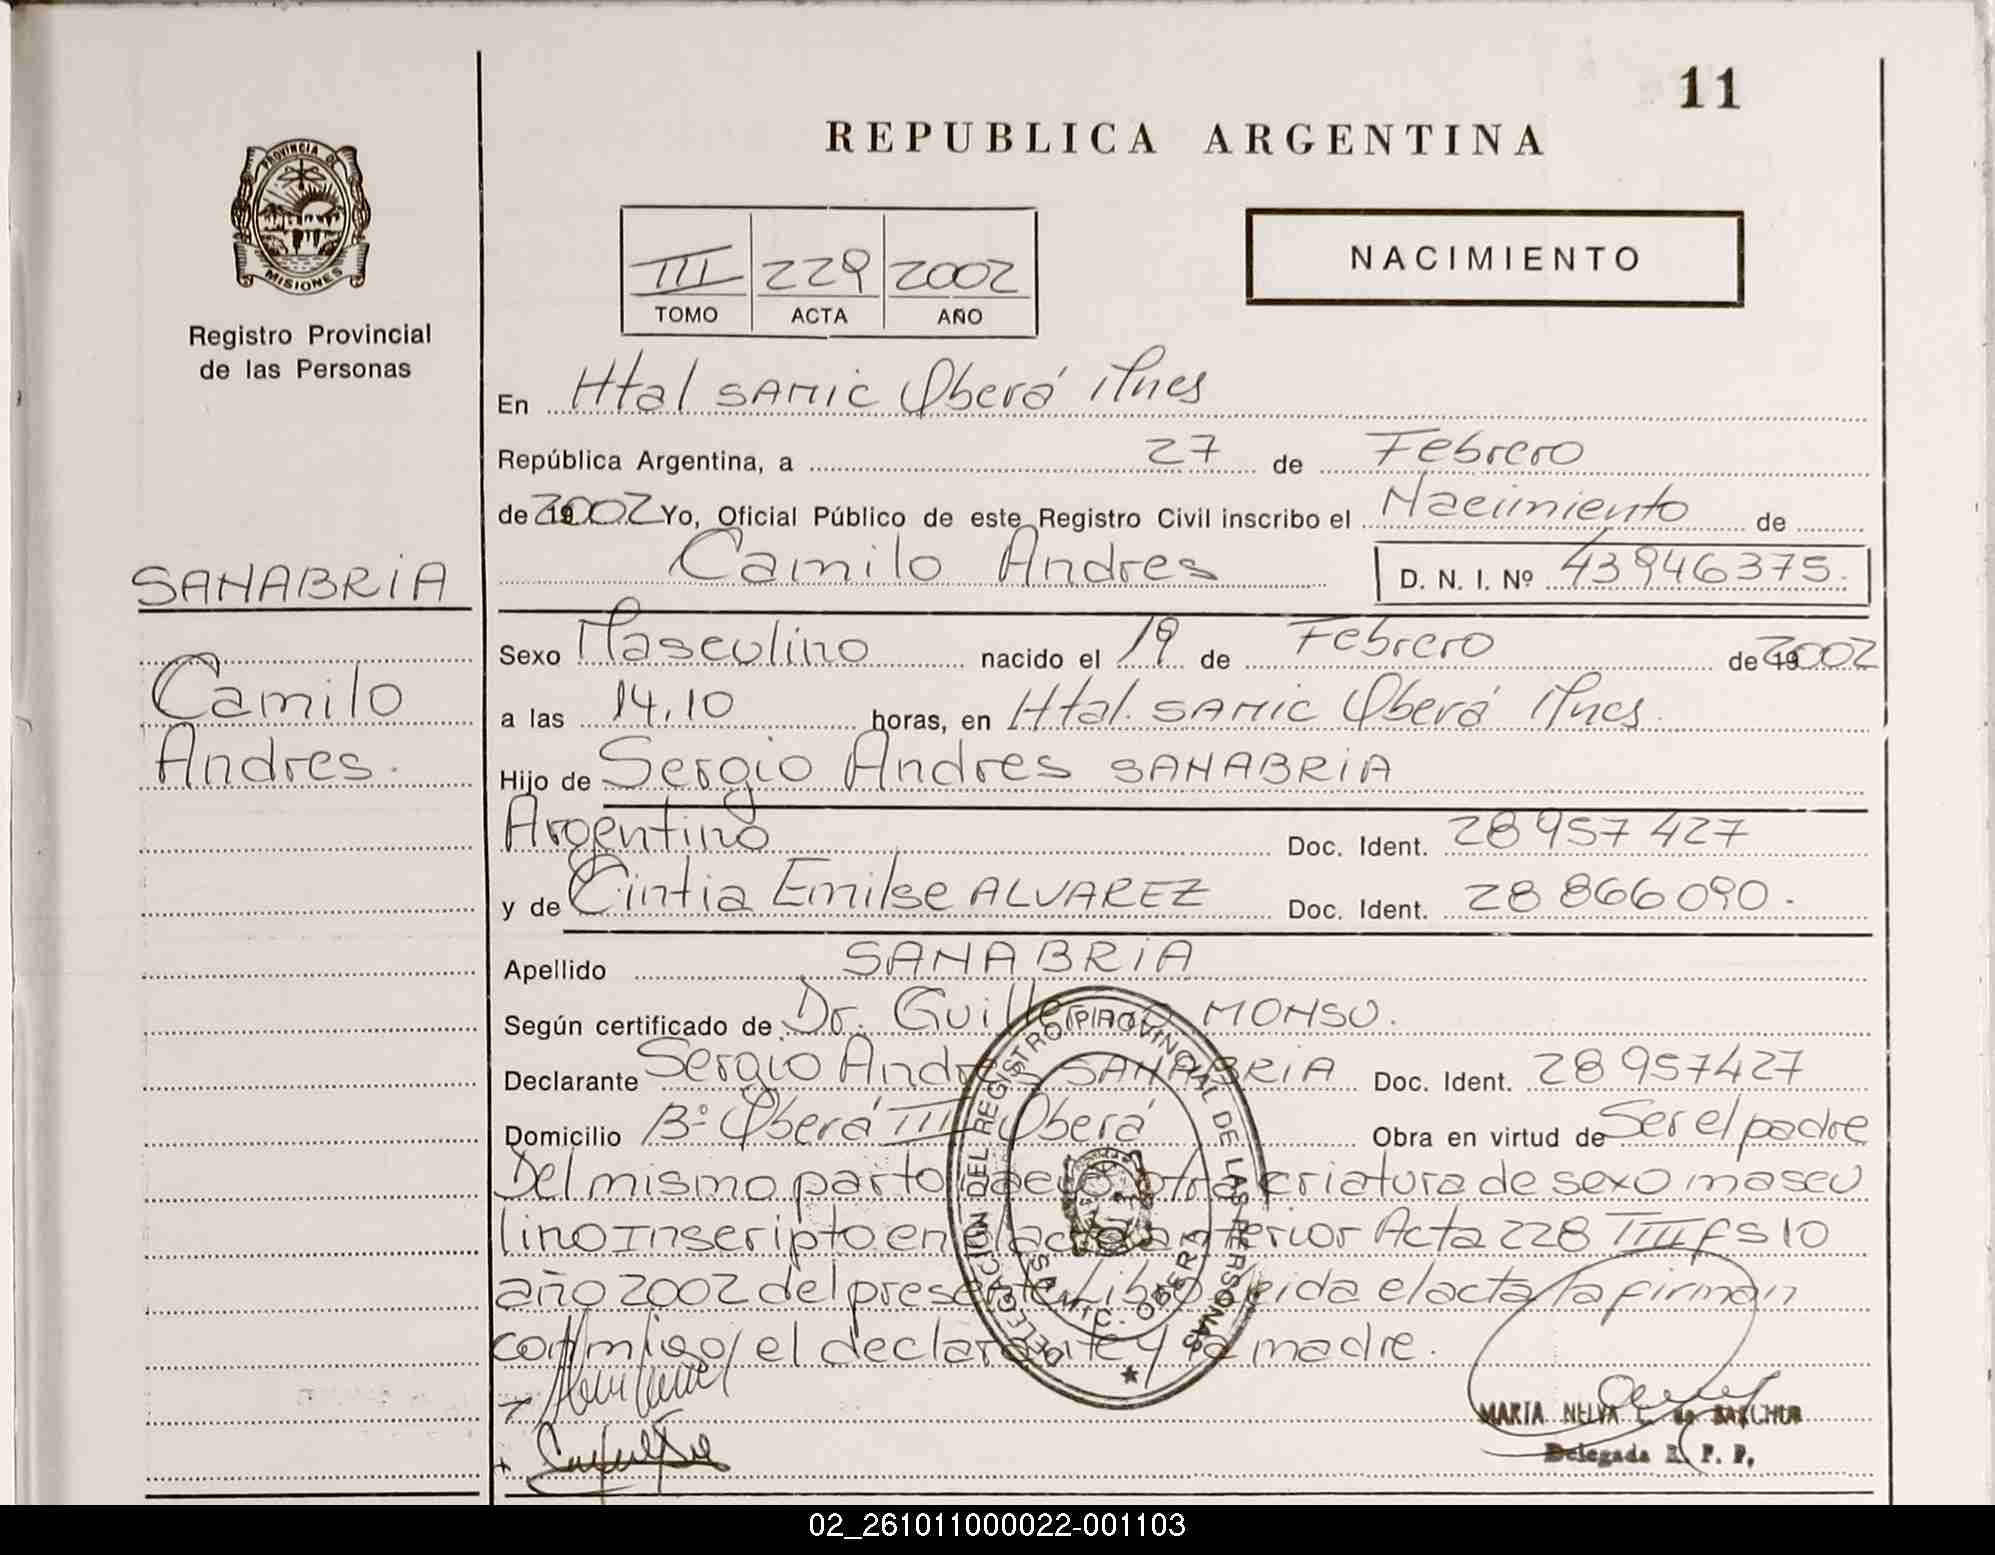 11
REPUBLICA ARGENTINA
PROVINCIA DE
MISIONES
Registro Provincial
de las Personas
III 229 2002
TOMO ACTA AÑO
NACIMIENTO
En Htal SAMIC Oberá Mnes
República Argentina, a 27 de Febrero
de 2002 Yo, Oficial Público de este Registro Civil inscribo el Nacimiento de
Camilo Andres D. N. I. Nº 43946375.
SANABRIA
Camilo
Andres.
Sexo Masculino nacido el 19 de Febrero de 2002
a las 14,10 horas, en Htal. SAMIC Oberá Mnes.
Hijo de Sergio Andres SANABRIA
Argentino Doc. Ident. 28 957 427
y de Cintia Emilse ALVAREZ Doc. Ident. 28 866 090.
Apellido SANABRIA
Según certificado de Dr. Guillermo MONSU.
Declarante Sergio Andres SANABRIA Doc. Ident. 28 957427
Domicilio Bº Oberá III Oberá Obra en virtud de Ser el padre
Del mismo parto nacio otra criatura de sexo mascu
lino Inscripto en el acta anterior Acta 228 TIII Fs 10
año 2002 del presente Libro Leida el acta la firman
conmigo el declarante y la madre.
DELEGACION DEL REGISTRO PROVINCIAL DE LAS PERSONAS
SAMIC. OBERA
MARIA NELVA L. de
Delegada R. P. P.
02_261011000022-001103